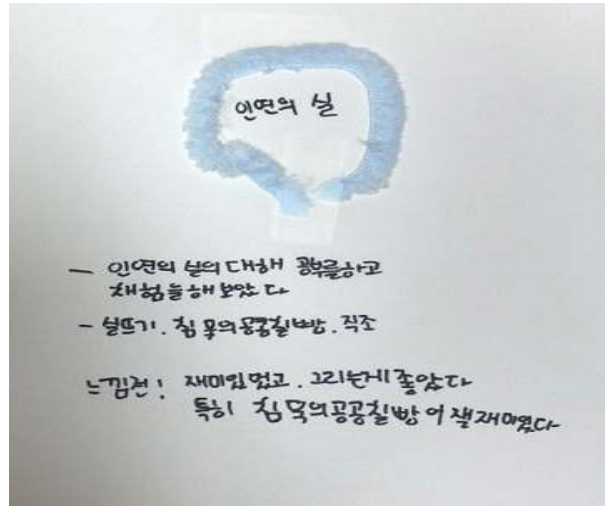 인연의 실
- 인연의 실의 대해 공부를하고
채험을해 보았다
- 실뜨기. 침묵의공공칠빵. 직조
느낌전! 재미있었고. 그리는게 좋았다
특히 침묵의공공칠빵 이 잴재미있다